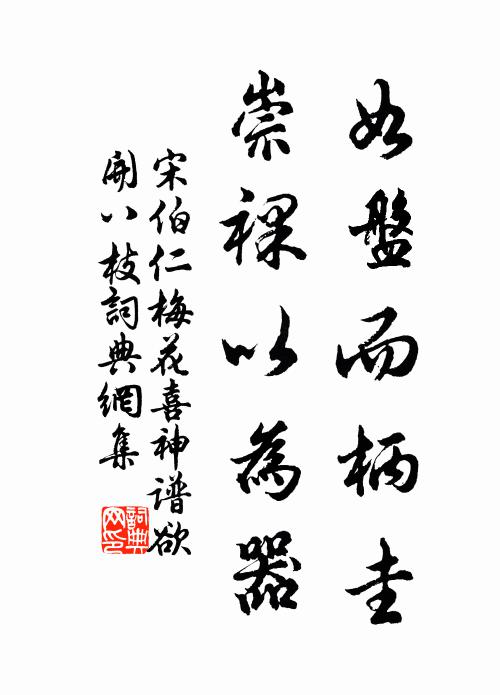 如盤而柄圭
崇裸以為器
宋伯仁梅花喜神谱欲
開八枝詞典網集
詞典网印